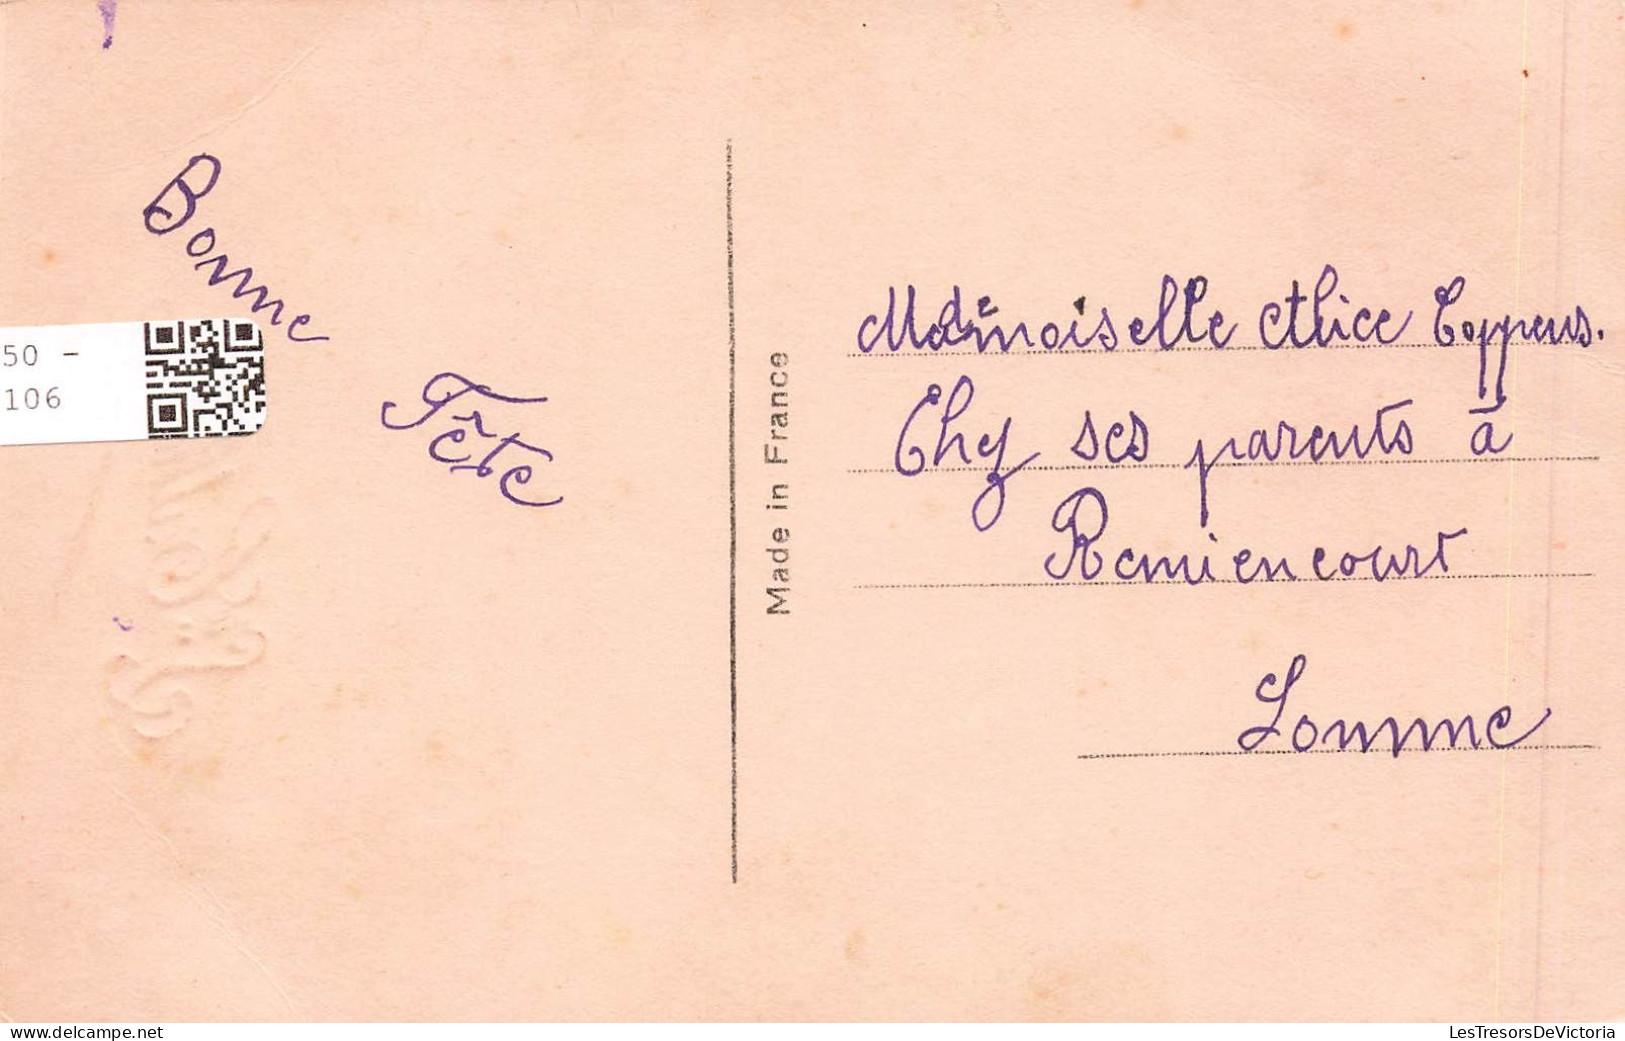 Bonne
Fête
50 -
106
Made in France
Mademoiselle Alice Coppens.
Chez ses parents à
Remiencourt
Somme
www.delcampe.net
LesTresorsDeVictoria